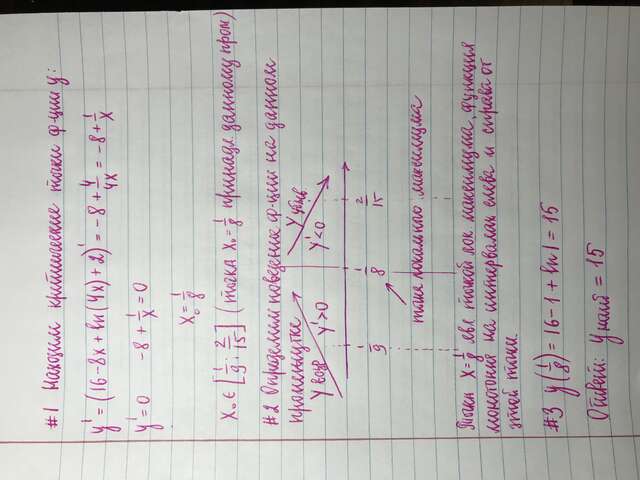 #1 Находим критические точки ф-ции y:
y' = (16-8x+ln(4x)+2)' = -8 + 4/4x = -8 + 1/x
y' = 0   -8 + 1/x = 0
x₀ = 1/8
x₀ ∈ [1/9; 2/15] (точка x₀ = 1/8 принадл данному пром)
#2 Определим поведение ф-ции на данном
промежутке
y возр y убыв
y' > 0 y' < 0
1/9 1/8 2/15
точка локального максимума
Точка x = 1/8 явл точкой лок максимума, функция
монотонна на интервалах слева и справа от
этой точки.
#3 y(1/8) = 16 - 1 + ln 1 = 15
Ответ: yнаиб = 15